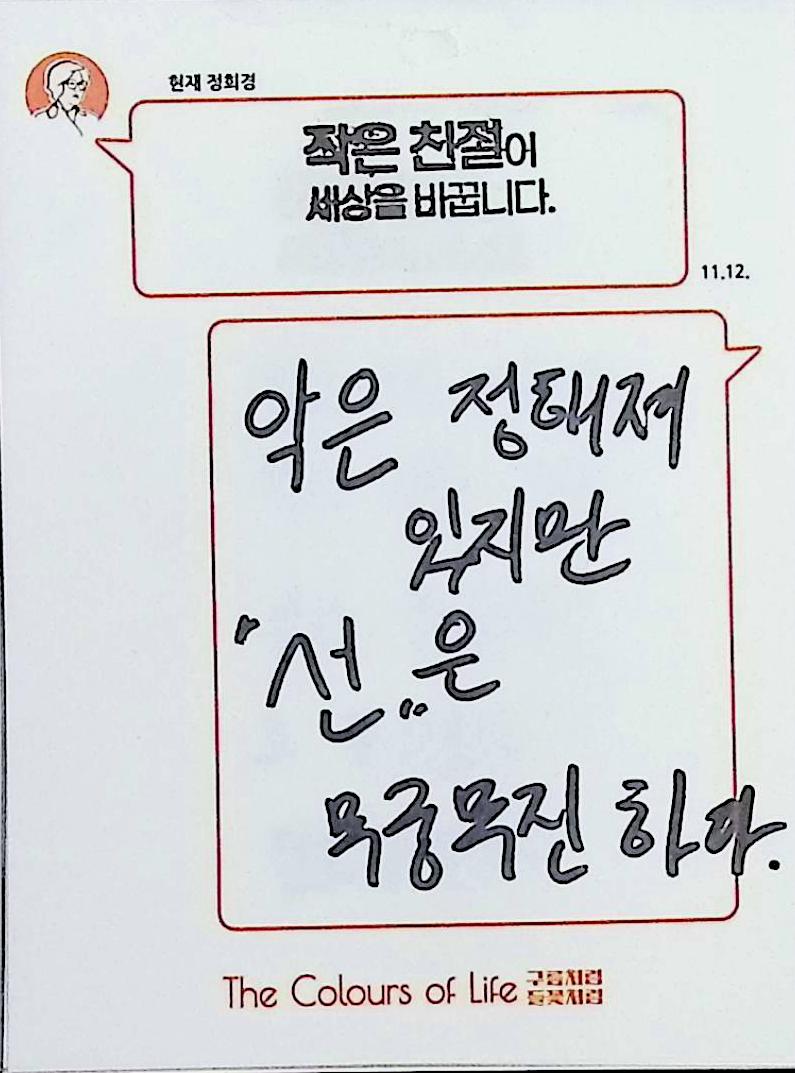 현재 정희경
작은 친절이
세상을 바꿉니다.
11.12.
악은 정해져
있지만
"선"은
무궁무진 하다.
The Colours of Life 구름처럼
들꽃처럼